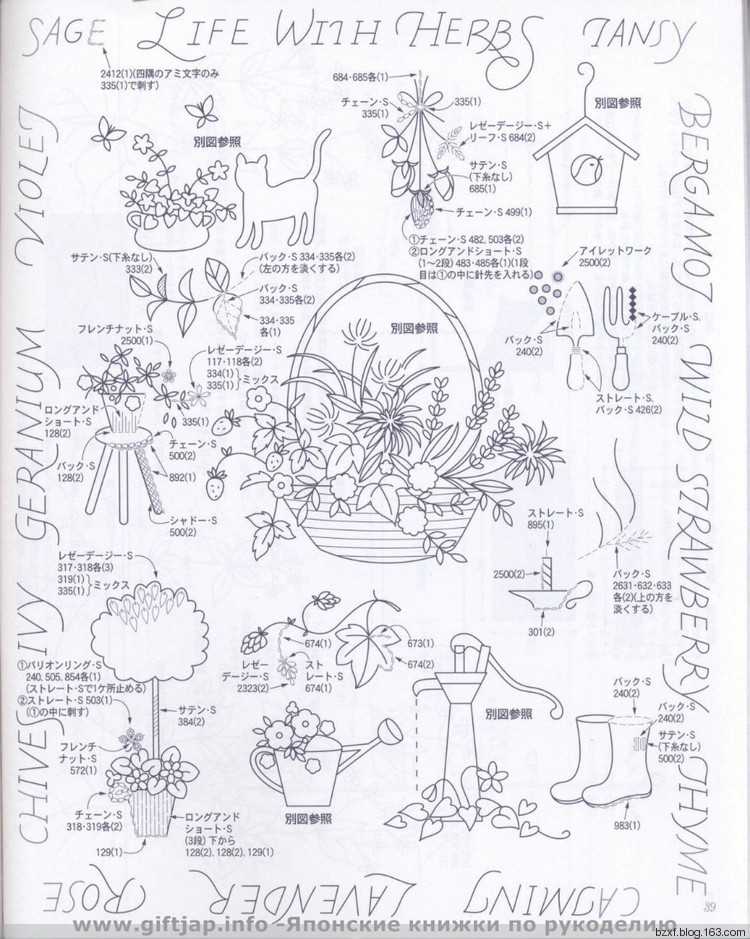 SAGE LIFE WITH HERBS TANSY
2412(1)(四隅のアミ文字のみ
335(1)で刺す)
684・685各(1)
チェーン・S
335(1)
335(1)
レゼーデージー・S+
リーフ・S 684(2)
サテン・S
(下糸なし)
685(1)
チェーン・S 499(1)
①チェーン・S 482、503各(2)
②ロングアンドショート・S
(1〜2段) 483・485各(1)(1段
目は①の中に針先を入れる)
別図参照
別図参照
VIOLET
BERGAMOT
サテン・S(下糸なし)
333(2)
バック・S 334・335各(2)
(左の方を淡くする)
バック・S
334・335各(2)
334・335
各(1)
アイレットワーク
2500(2)
バック・S
240(2)
ケーブル・S.
バック・S
240(2)
ストレート・S.
バック・S 426(2)
別図参照
フレンチナット・S
2500(1)
レゼーデージー・S
117・118各(2)
334(1)
335(1)
ミックス
335(1)
ロングアンド
ショート・S
128(2)
チェーン・S
500(2)
892(1)
バック・S
128(2)
シャドー・S
500(2)
GERANIUM
WILD STRAWBERRY
ストレート・S
895(1)
2500(2)
301(2)
バック・S
2631・632・633
各(2)(上の方を
淡くする)
レゼーデージー・S
317・318各(3)
319(1)
335(1)
ミックス
IVY
①バリオンリング・S
240、505、854各(1)
(ストレート・Sで1ケ所止める)
②ストレート・S 503(1)
(①の中に刺す)
サテン・S
384(2)
フレンチ
ナット・S
572(1)
チェーン・S
318・319各(2)
129(1)
ロングアンド
ショート・S
(3段) 下から
128(2)、128(2)、129(1)
674(1)
673(1)
674(2)
レゼー
デージー・S
2323(2)
スト
レート・S
674(1)
別図参照
別図参照
バック・S
240(2)
バック・S
240(2)
サテン・S
(下糸なし)
500(2)
983(1)
CHIVES
THYME
ROSE LAVENDER JASMINE
39
www.giftjap.info -Японские книжки по рукоделию
bzxf.blog.163.com